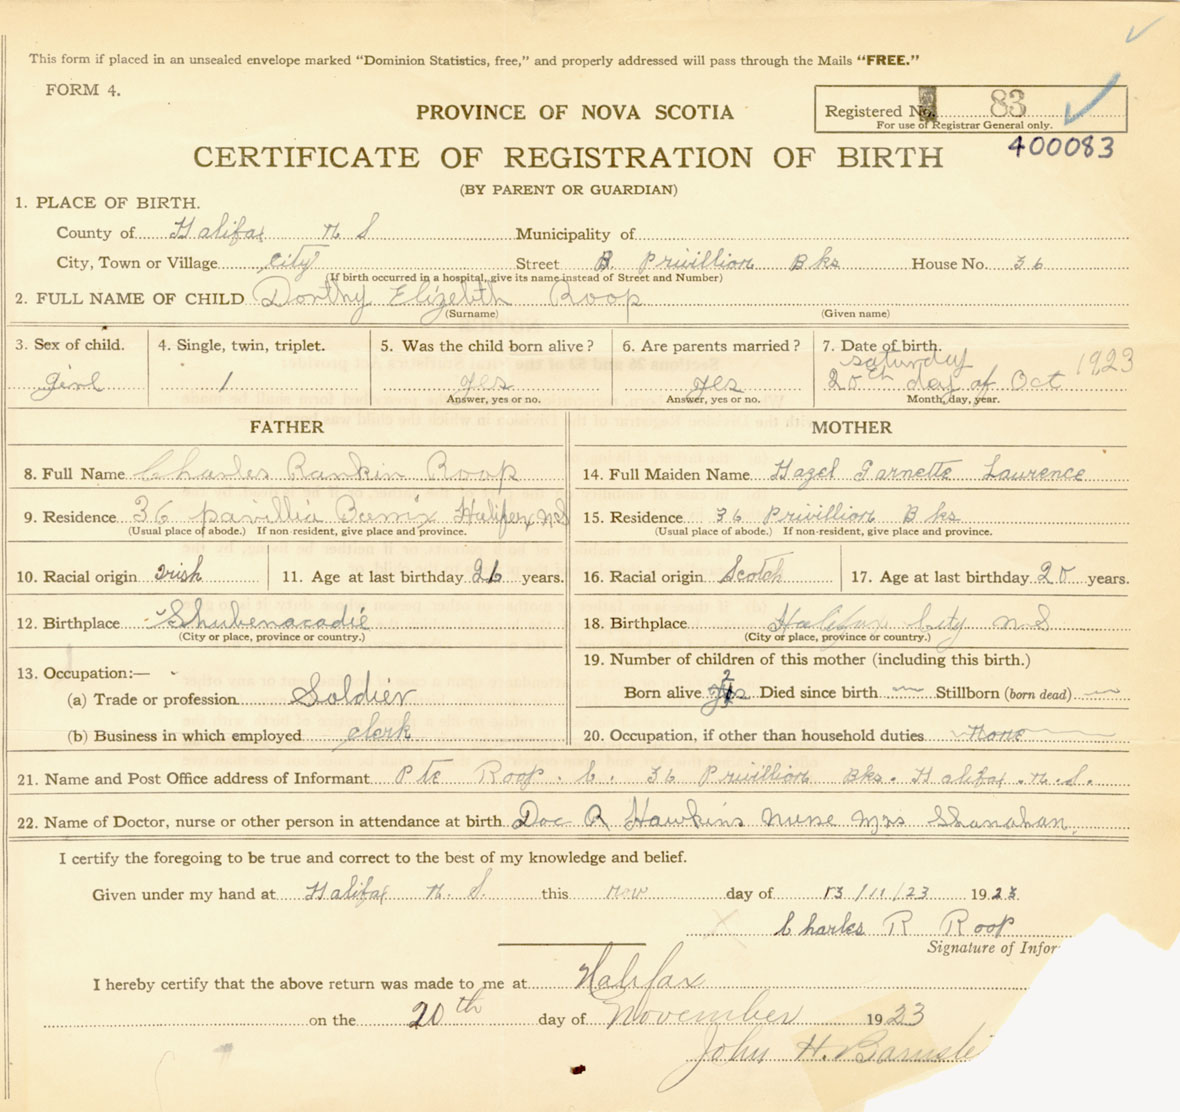 This form if placed in an unsealed envelope marked "Dominion Statistics, free," and properly addressed will pass through the Mails "FREE."
FORM 4.
PROVINCE OF NOVA SCOTIA
Registered No. 83
For use of Registrar General only.
400083
CERTIFICATE OF REGISTRATION OF BIRTH
(BY PARENT OR GUARDIAN)
1. PLACE OF BIRTH.
County of Halifax N S Municipality of
City, Town or Village City Street B Privillion Bks House No. 36
(If birth occurred in a hospital, give its name instead of Street and Number)
2. FULL NAME OF CHILD Dorthy Elizebth Roop
(Surname) (Given name)
3. Sex of child. 4. Single, twin, triplet. 5. Was the child born alive? 6. Are parents married? 7. Date of birth.
girl 1 yes yes Saturday 20th day of Oct 1923
Answer, yes or no. Answer, yes or no. Month, day, year.
FATHER MOTHER
8. Full Name Charles Rankin Roop
14. Full Maiden Name Hazel Garnette Laurence
9. Residence 36 Halifax N.S
(Usual place of abode.) If non-resident, give place and province.
15. Residence 36 Privillion Bks
(Usual place of abode.) If non-resident, give place and province.
10. Racial origin Irish 11. Age at last birthday 26 years.
16. Racial origin Scotch 17. Age at last birthday 20 years.
12. Birthplace Shubenacadie
(City or place, province or country.)
18. Birthplace Halifax City N.S
(City or place, province or country.)
13. Occupation:—
(a) Trade or profession Soldier
(b) Business in which employed clerk
19. Number of children of this mother (including this birth.)
Born alive 2 Died since birth Stillborn (born dead)
20. Occupation, if other than household duties None
21. Name and Post Office address of Informant Pte Roop. C. 36 Privillion Bks. Halifax. N.S.
22. Name of Doctor, nurse or other person in attendance at birth Doc R Hawkins Nurse Mrs Shanahan
I certify the foregoing to be true and correct to the best of my knowledge and belief.
Given under my hand at Halifax N. S. this nov day of 13/11/23 1923
Charles R Roop
Signature of Infor
I hereby certify that the above return was made to me at Halifax
on the 20th day of November 1923
John H.